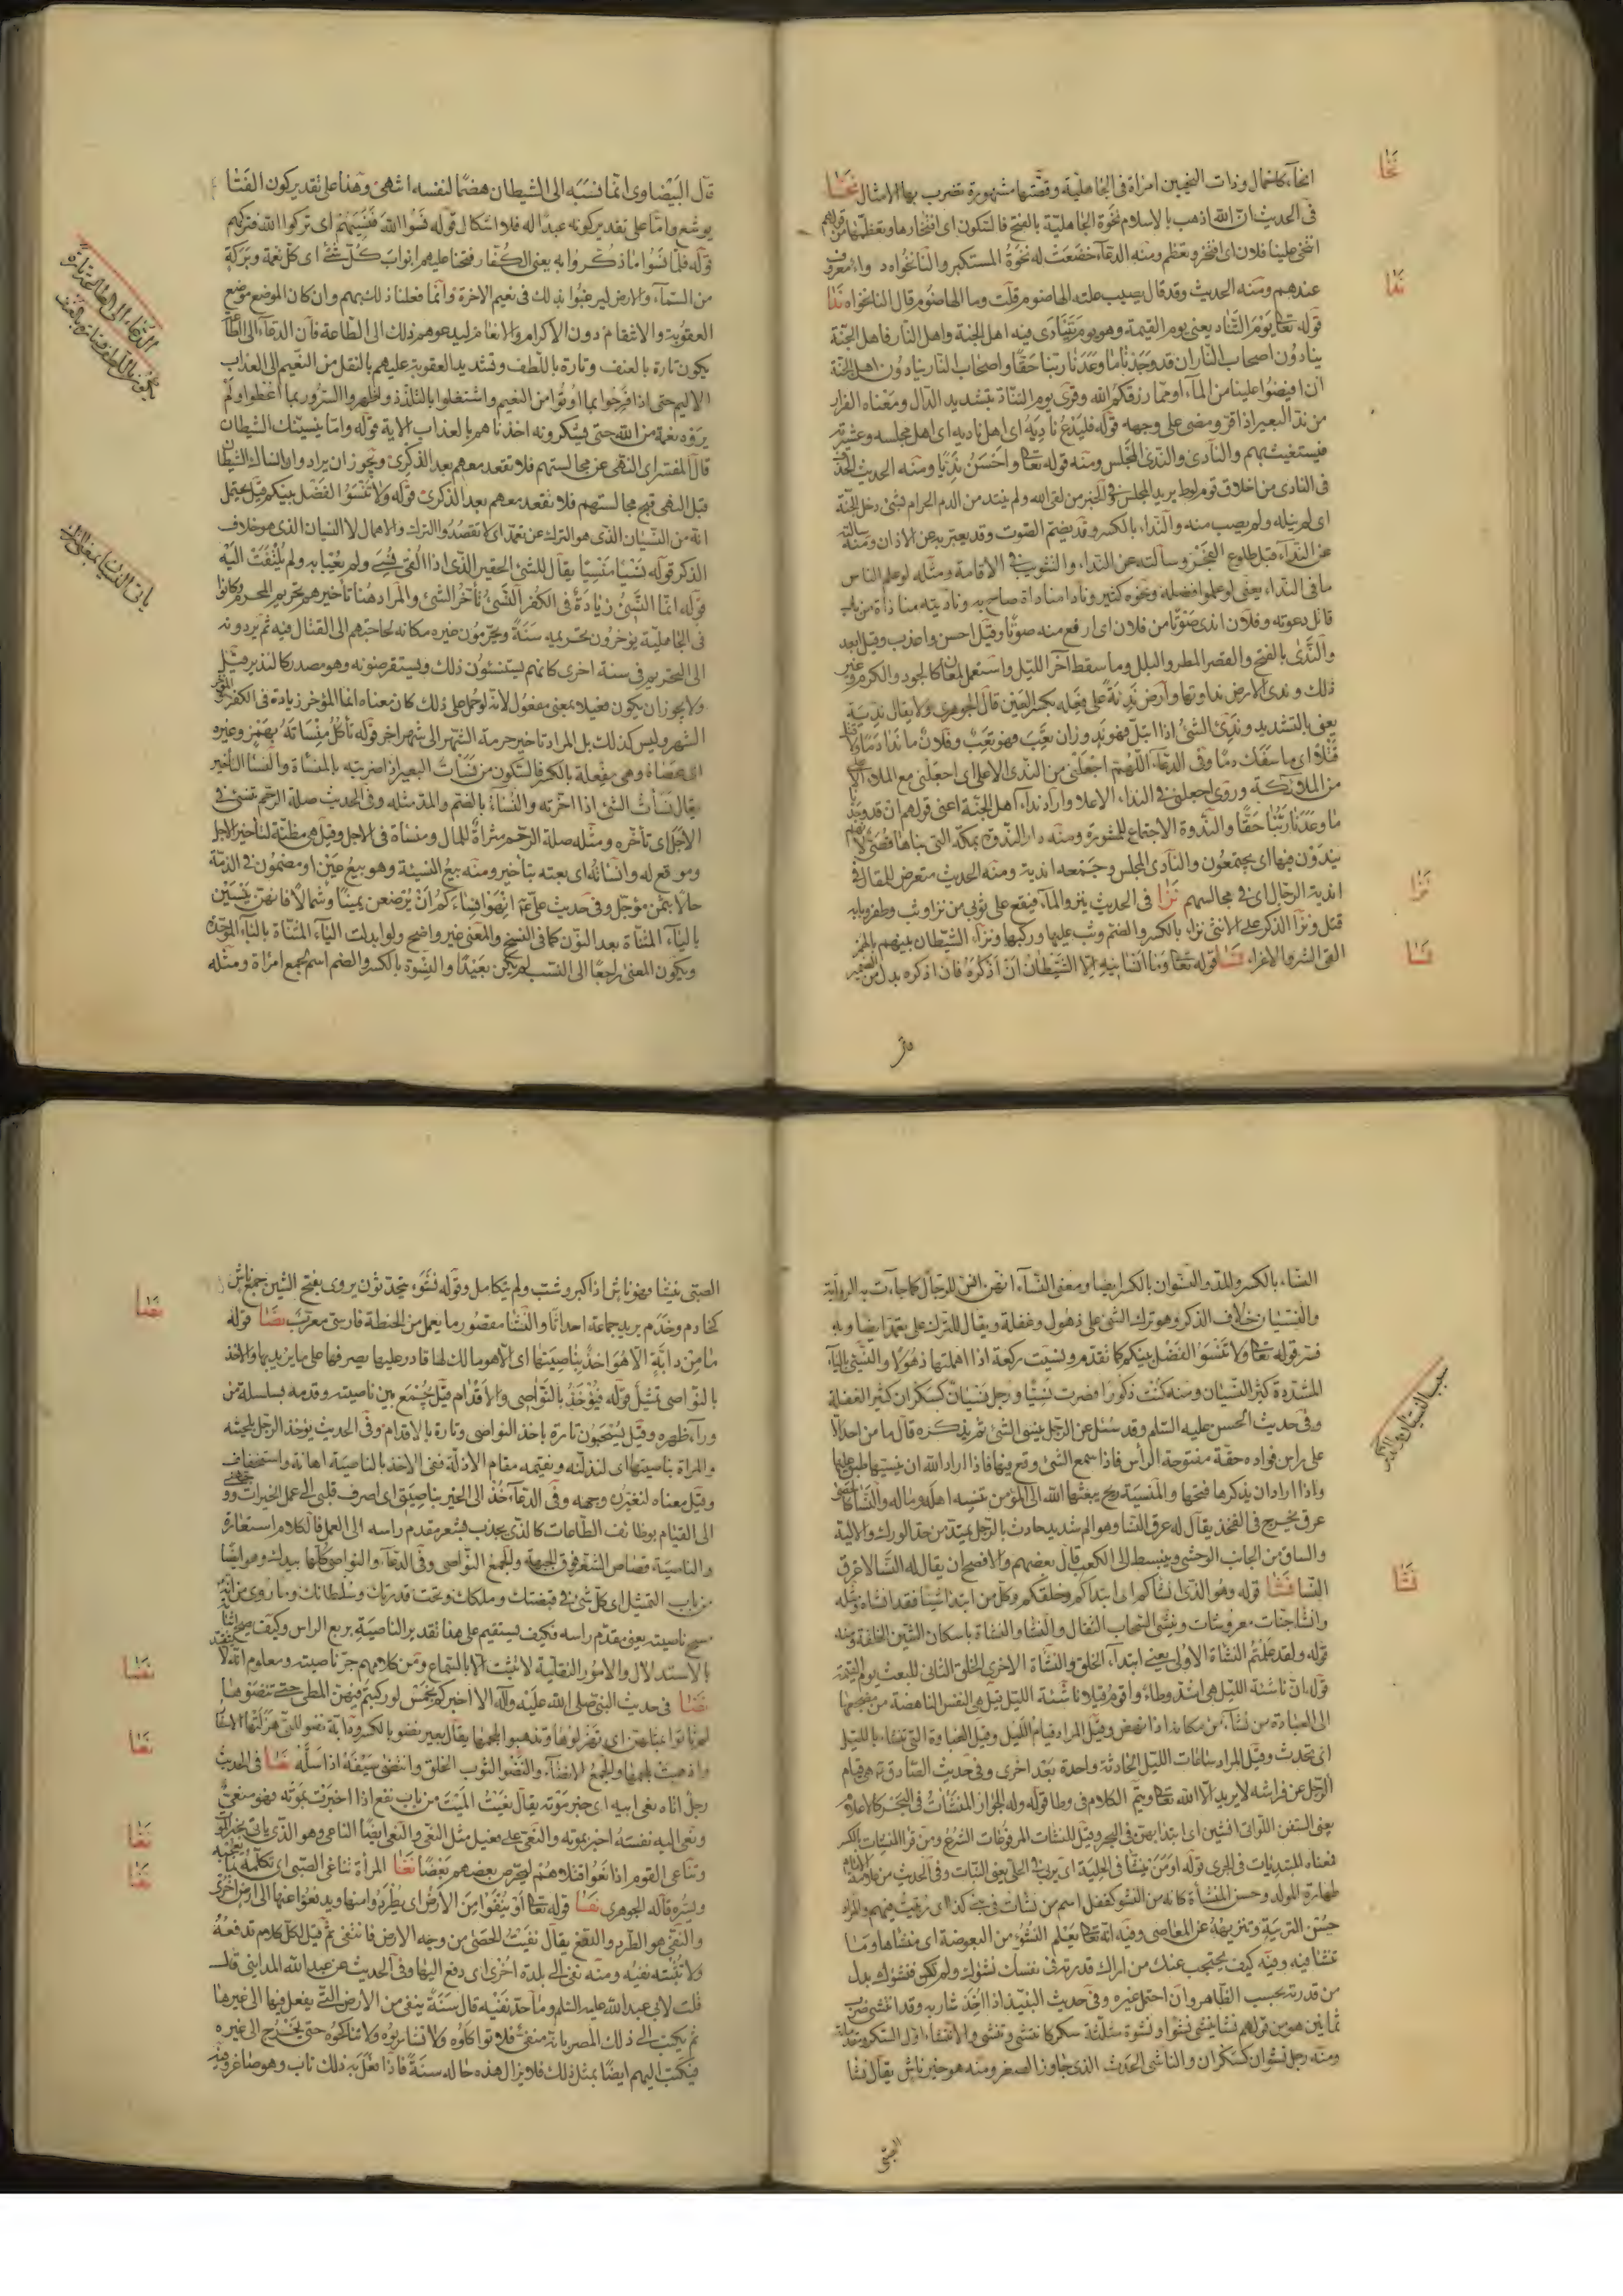 انحاء كاحمال وذات النحيين امراة فى الجاهلية وقصتها مشهورة تضرب بها الامثال نخا
فى الحديث ان الله اذهب بالاسلام نخوة الجاهلية بالفتح فالسكون اى افتخارها وتعظمها من قولهم
انتخى علينا فلان اى افتخر وتعظم ومنه الدعاء خضعت له نخوة المستكبر والنانخواه دواء معروف
عندهم ومنه الحديث وقد قال يصيب علته الهاضوم قلت وما الهاضوم قال النانخواه ندا
قوله تعالى يوم التناد يعنى يوم القيمة وهو يوم يتنادى فيه اهل الجنة واهل النار فاهل الجنة
ينادون اصحاب النار ان قد وجدنا ما وعدنا ربنا حقا واصحاب النار ينادون اهل الجنة
ان افيضوا علينا من الماء او مما رزقكم الله وقرئ يوم التناد بتشديد الدال ومعناه الفرار
من ند البعير اذا فر ومضى على وجهه قوله فليدع ناديه اى اهل ناديه اى اهل مجلسه وعشيرته
فيستغيث بهم والنادى والندى المجلس ومنه قوله تعالى واحسن نديا ومنه الحديث
فى النادى من اخلاق قوم لوط يريد المجلس وفى الخبر من لقى الله ولم يتند من الدم الحرام بشئ دخل الجنة
اى لم ينله ولم يصب منه والنداء بالكسر وقد يضم الصوت وقد يعبر به عن الاذان ومنه سالته
عن النداء قبل طلوع الفجر وسألته عن النداء والتثويب فى الاقامة ومثله لو علم الناس
ما فى النداء يعنى لو علموا فضله ونحوه كثير وناداه مناداة صاح به وناديته مناداة من باب
قاتل دعوته وفلان اندى صوتا من فلان اى ارفع منه صوتا وقيل احسن واعذب وقيل ابعد
والندى بالفتح والقصر المطر والبلل وما سقط آخر الليل واستعمل لمعان كالجود والكرم وغير
ذلك وندى الارض نداوتها وارض ندية على فعلة بكسر العين قال الجوهرى ولا يقال ندية
يعنى بالتشديد وندى الشئ اذا ابتل فهو ند وزان تعب فهو تعب وفلان ما ندا دما ولا
قتلا اى ما سفك دما وفى الدعاء اللهم اجعلنى من الندى الاعلى اى اجعلنى مع الملاء الاعلى
من الملائكة وروى اجعلنى فى النداء الاعلا واراد نداء اهل الجنة اعنى قولهم ان قد وجدنا
ما وعدنا ربنا حقا والندوة الاجتماع للمشورة ومنه دار الندوة بمكة التى بناها قصى لانهم
يندون فيها اى يجتمعون والنادى المجلس وجمعه اندية ومنه الحديث متعرض للمقال فى
اندية الرجال اى فى مجالسهم نزا فى الحديث ينزو الماء فيقع على ثوبى من نزا وثب وطفر وبابه
قتل ونزا الذكر على الانثى نزاء بالكسر والضم وثب عليها وركبها ونزاء الشيطان بينهم بالهمز
القى الشر والاغراء نسا قوله تعالى وما انسانيه الا الشيطان ان اذكره فان اذكره بدل من الضمير
نخا
ندا
نزا
نسا
قال
قال البيضاوى انما نسبه الى الشيطان هضما لنفسه انتهى وهذا على تقدير كون الفتا
يوشع واما على تقدير كونه عبدا له فلا اشكال قوله نسوا الله فنسيهم اى تركوا الله فتركهم
قوله فلما نسوا ما ذكروا به يعنى الكفار فتحنا عليهم ابواب كل شئ اى كل نعمة وبركة
من السماء والارض ليرغبوا بذلك فى نعيم الاخرة وانما فعلنا ذلك بهم وان كان الموضع موضع
العقوبة والانتقام دون الاكرام والانعام ليدعوهم ذلك الى الطاعة فان الدعاء الى الطاعة
يكون تارة بالعنف وتارة باللطف وتشديد العقوبة عليهم بالنقل من النعيم الى العذاب
الاليم حتى اذا فرحوا بما اوتوا من النعيم واشتغلوا بالتلذذ واظهروا السرور بما اعطوا ولم
يروه نعمة من الله حتى يشكرونه اخذناهم بالعذاب الاية قوله واما ينسينك الشيطان
قال المفسر اى النهى عن مجالستهم فلا تقعد معهم بعد الذكرى ويجوز ان يراد وان انساك الشيطان
قبل النهى قبح مجالستهم فلا تقعد معهم بعد الذكرى قوله ولا تنسوا الفضل بينكم قيل يحتمل
انه من النسيان الذى هو الترك عن تعمد اى لا تقصدوا الترك والاهمال لا النسيان الذى هو خلاف
الذكر قوله نسيا منسيا يقال للشئ الحقير الذى اذا القى نسى ولم يعبا به ولم يلتفت اليه
قوله انما النسئ زيادة فى الكفر النسئ تأخر الشئ والمراد هنا تأخيرهم تحريم المحرم وكانوا
فى الجاهلية يؤخرون تحريمه سنة ويحرمون غيره مكانه لحاجتهم الى القتال فيه ثم يردونه
الى التحريم فى سنة اخرى كانهم يستنسئون ذلك ويستقرضونه وهو مصدر كالنذير قيل
ولا يجوز ان يكون فعيلا بمعنى مفعول لانه لو حمل على ذلك كان معناه انما المؤخر زيادة فى الكفر
الشهر وليس كذلك بل المراد تاخير حرمة الشهر الى شهر اخر قوله تأكل منسأته بهمز وغيره
اى عصاه وهى مفعلة بالكسر فالسكون من نسأت البعير اذا ضربته بالمنسأة والنسأ التأخير
يقال نسأت الشئ اذا اخرته والنساء بالضم والمد مثله وفى الحديث صلة الرحم تنسئ فى
الاجل اى تأخره ومثله صلة الرحم مثراة للمال ومنساة فى الاجل وقيل هى مظنة لتأخير الاجل
وموقع له وانسأته اى بعته بتأخير ومنه بيع النسيئة وهو بيع عين او مضمون فى الذمة
حالا بثمن مؤجل وفى حديث على انهوا نساءكم ان يرضعن يمينا وشمالا فانهن ينسين
بالياء المثناة بعد النون كما فى النسخ والمعنى غير واضح ولو ابدلت الياء المثناة بالباء الموحدة
ويكون المعنى راجعا الى النسب لم يكن بعيدا والنسوة بالكسر والضم اسم لجمع امراة ومثله
الدعاء الى الطاعة تارة
يكون باللطف وتارة بالعنف
النساء بالكسر والمد والنسوان بالكسر ايضا ومعنى النساء انهن انس للرجال كما جاءت به الرواية
والنسيان خلاف الذكر وهو ترك الشئ على ذهول وغفلة ويقال للترك على تعمد ايضا وبه
فسر قوله تعالى ولا تنسوا الفضل بينكم كما تقدم ونسيت ركعة اذا اهملتها ذهولا والنسئ بالياء
المشددة كثير النسيان ومنه كنت ذكورا فصرت نسيا ورجل نسيان كسكران كثير الغفلة
وفى حديث الحسن عليه السلم وقد سئل عن الرجل ينسى الشئ ثم يذكره قال ما من احد الا
على راس فواده حقة مفتوحة الرأس فاذا سمع الشئ وقع فيها فاذا اراد الله ان ينسيها طبق عليها
واذا اراد ان يذكرها فتحها والمنسية ريح يبعثها الله الى المؤمن تنسيه اهله وماله والنسا كالحصى
عرق يخرج فى الفخذ يقال له عرق النسا وهو الم شديد حادث بالرجل يمتد من حد الورك والالية
والساق من الجانب الوحشى وينبسط الى الكعب قال بعضهم والافصح ان يقال له النسا لا عرق
النسا نشا قوله وهو الذى انشاكم اى ابتداكم وخلقكم وكل من ابتدا شيئا فقد انشاه ومثله
وانشا جنات معروشات وينشئ السحاب الثقال والنشا والنشاة باسكان الشين الخلقة ومنه
قوله ولقد علمتم النشاة الاولى يعنى ابتداء الخلق والنشاة الاخرى الخلق الثانى للبعث يوم القيمة
قوله ان ناشئة الليل هى اشد وطاء واقوم قيلا ناشئة الليل قيل هى النفس الناهضة من مضجعها
الى العبادة من نشا من مكانه اذا نهض وقيل المراد قيام الليل وقيل العبادة التى تنشاء بالليل
اى تحدث وقيل المراد ساعات الليل الحادثة واحدة بعد اخرى وفى حديث الصادق هى قيام
الرجل عن فراشه لا يريد الا الله تعالى ويتم الكلام فى وطا قوله وله الجوار المنشئات فى البحر كالاعلام
يعنى السفن اللواتى انشئن اى ابتدا بهن فى البحر وقيل المنشئات المرفوعات الشرع ومن قرا المنشئات بالكسر
فمعناه المبتديات فى الجرى قوله اومن ينشؤا فى الحلية اى يربى فى الحلى يعنى البنات وفى الحديث من علامة
طهارة المولد وحسن المنشأة كانه من النشؤ كقفل اسم من نشات فى بنى كذا اى ربيت فيهم والمراد
حسن التربية وتنزيهه عن المعاصى وفيه انه تعالى يعلم النشؤ من البعوضة اى منشاها وما
تنشا فيه وفيه كيف يحتجب عنك من اراك قدرته فى نفسك نشؤك ولم تكن فنشؤك بدل
من قدرته بحسب الظاهر وان احتمل غيره وفى حديث النبيذ اذا اخذ شاربه وقد انتشى ضرب
ثمانين هو من قولهم نشا ينشى نشوا ونشوة مثلثة سكر كانتشى وتنشى والانتشاء اول السكر ومقدماته
ومنه رجل نشوان كسكران والناشى الحدث الذى جاوز الصغر ومنه هو خير ناش يقال نشا
سبب النسيان والذكر
نشا
الصبى
الصبى ينشا فهو ناش اذا كبر وشب ولم يتكامل وقوله نشوء يتحدثون يروى بفتح الشين جمع ناش
كخادم وخدم يريد جماعة احداثا والنشا مقصور ما يعمل من الحنطة فارسى معرب نصا قوله
ما من دابة الا هو اخذ بناصيتها اى الا هو مالك لها قادر عليها يصرفها على ما يريد بها والاخذ
بالنواصى تمثيل قوله فيؤخذ بالنواصى والاقدام قيل يجمع بين ناصيته وقدمه بسلسلة من
وراء ظهره وقيل يسحبون تارة باخذ النواصى وتارة بالاقدام وفى الحديث يؤخذ الرجل بلحيته
والمراة بناصيتها اى لتذلته وتقيمه مقام الاذلة ففى الاخذ بالناصية اهانة واستخفاف
وقيل معناه لنغيرن وجهه وفى الدعاء خذ الى الخير بناصيتى اى اصرف قلبى الى عمل الخيرات
الى القيام بوظائف الطاعات كالذى يجذب بشعر مقدم راسه الى العمل فالكلام استعارة
والناصية قصاص الشعر فوق الجبهة والجمع النواصى وفى الدعاء والنواصى كلها بيدك وهو ايضا
من باب التمثيل اى كل شئ فى قبضتك وملكك وتحت قدرتك وسلطانك وما روى من انه
مسح ناصيته يعنى مقدم راسه فكيف يستقيم على هذا تقدير الناصية بربع الراس وكيف يصح
بالاستدلال والامور النقلية لا تثبت الا بالسماع ومن كلامهم جز ناصيته ومعلوم انه لا
نضا فى حديث النبى صلى الله عليه وآله الا اخبركم بخمس لو ركبتم فيهن المطى حتى تنضوها
لم تاتوا بمثلهن اى تهزلوها وتذهبوا لحمها يقال بعير نضو بالكسر ودابة نضو للتى هزلتها الاسفار
واذهبت لحمها والجمع الانضاء والنضو الثوب الخلق وانتضى سيفه اذا سله نعا فى الحديث
رجل اتاه نعى ابيه اى خبر موته يقال نعيت الميت من باب نفع اذا اخبرت بموته فهو منعى
ونعى اليه نفسه اخبر بموته والنعى على فعيل مثل النعى والنعى ايضا الناعى وهو الذى ياتى بخبر الموت
وتناعى القوم اذا نعوا قتلاهم ليحرص بعضهم بعضا نغا المراة تناغى الصبى اى تكلمه بما يعجبه
ويسره قاله الجوهرى نفا قوله تعالى او ينفوا من الارض اى يطردوا منها ويدفعوا عنها الى ارض اخرى
والنفى هو الطرد والدفع يقال نفيت الحصى من وجه الارض فانتفى ثم قيل لكل كلام تدفعه
ولا تثبته نفيته ومنه نفى الى بلدة اخرى اى دفع اليها وفى الحديث عن عبد الله المداينى قال
قلت لابى عبد الله عليه السلم وما حد نفيه قال سنة ينفى من الارض التى يفعل فيها الى غيرها
ثم يكتب الى ذلك المصر بانه منفى فلا تواكلوه ولا تشاربوه ولا تناكحوه حتى يخرج الى غيره
فيكتب اليهم ايضا بمثل ذلك فلا يزال هذه حاله سنة فاذا فعل به ذلك تاب وهو صاغر
نصا
نضا
نعا
نغا
نفا